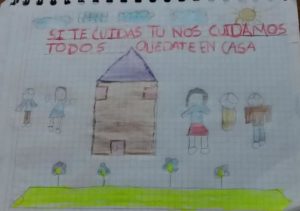 SI TE CUIDAS TU NOS CUIDAMOS
TODOS QUEDATE EN CASA